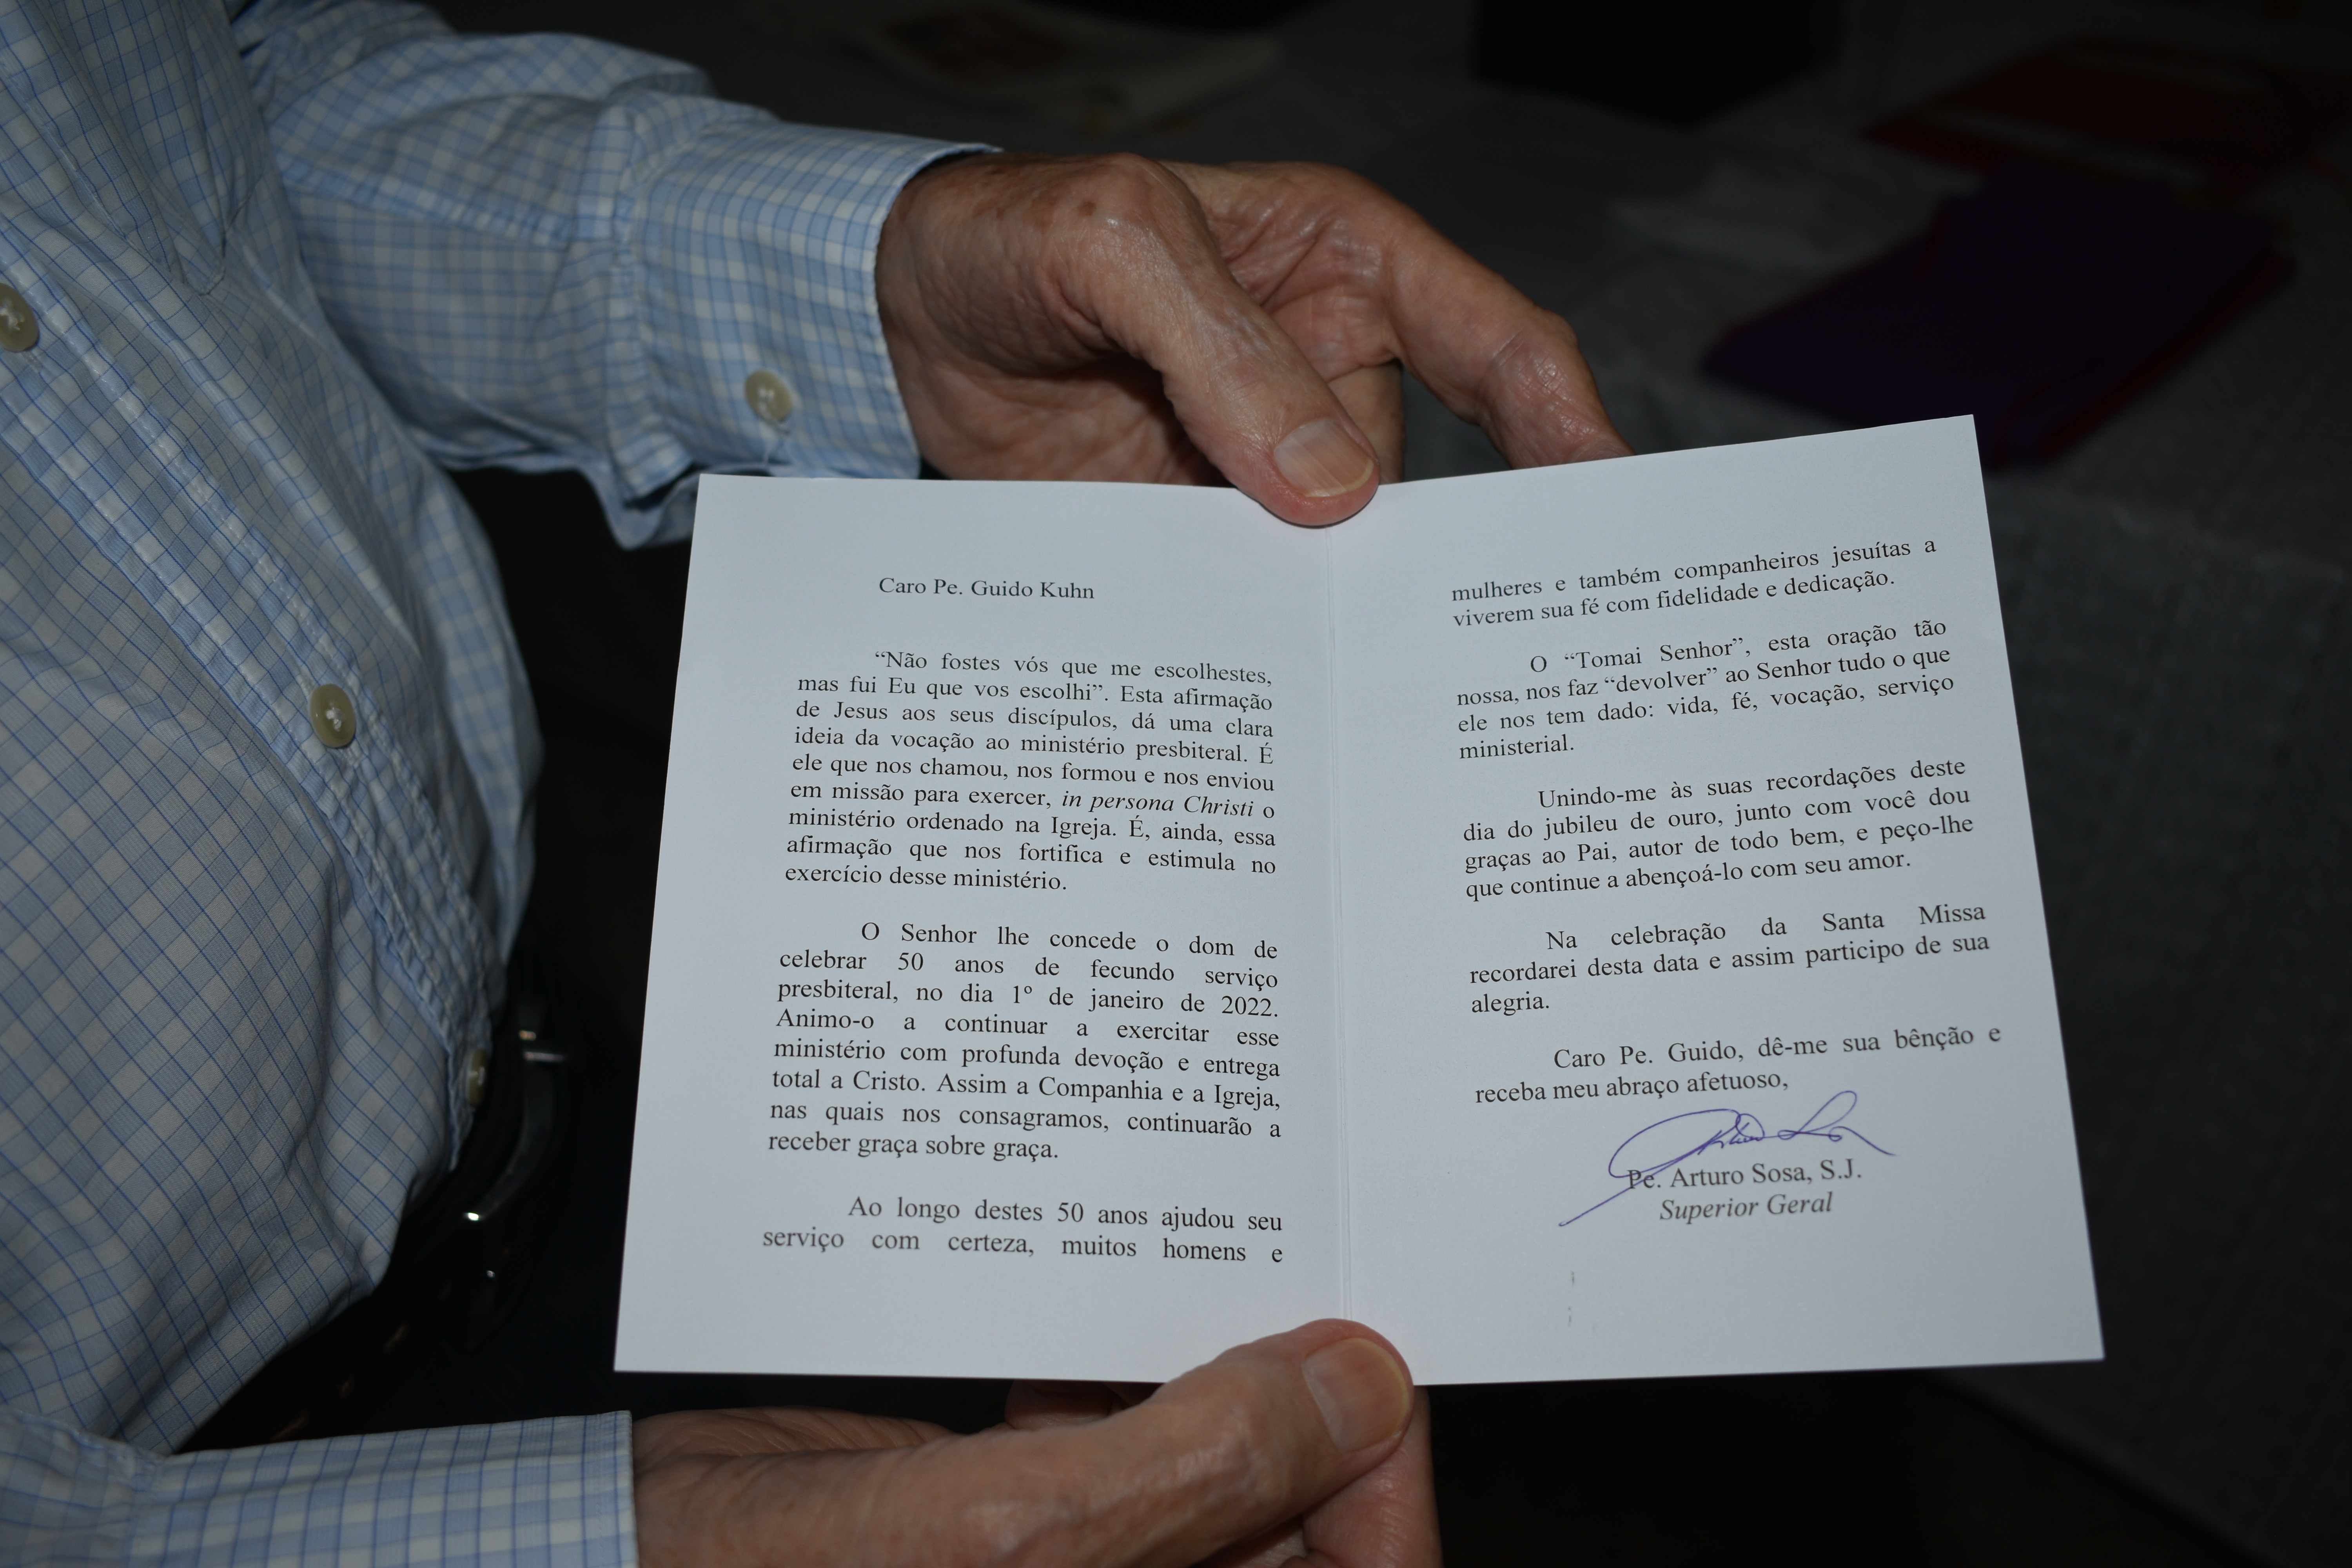 Caro Pe. Guido Kuhn
“Não fostes vós que me escolhestes,
mas fui Eu que vos escolhi”. Esta afirmação
de Jesus aos seus discípulos, dá uma clara
ideia da vocação ao ministério presbiteral. É
ele que nos chamou, nos formou e nos enviou
em missão para exercer, in persona Christi o
ministério ordenado na Igreja. É, ainda, essa
afirmação que nos fortifica e estimula no
exercício desse ministério.
O Senhor lhe concede o dom de
celebrar 50 anos de fecundo serviço
presbiteral, no dia 1º de janeiro de 2022.
Animo-o a continuar a exercitar esse
ministério com profunda devoção e entrega
total a Cristo. Assim a Companhia e a Igreja,
nas quais nos consagramos, continuarão a
receber graça sobre graça.
Ao longo destes 50 anos ajudou seu
serviço com certeza, muitos homens e
mulheres e também companheiros jesuítas a
viverem sua fé com fidelidade e dedicação.
O “Tomai Senhor”, esta oração tão
nossa, nos faz “devolver” ao Senhor tudo o que
ele nos tem dado: vida, fé, vocação, serviço
ministerial.
Unindo-me às suas recordações deste
dia do jubileu de ouro, junto com você dou
graças ao Pai, autor de todo bem, e peço-lhe
que continue a abençoá-lo com seu amor.
Na celebração da Santa Missa
recordarei desta data e assim participo de sua
alegria.
Caro Pe. Guido, dê-me sua bênção e
receba meu abraço afetuoso,
Pe. Arturo Sosa, S.J.
Superior Geral